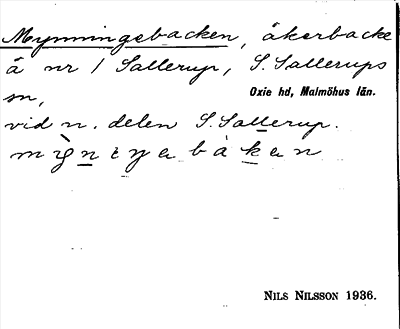 Mynningebacken, åkerbacke
å nr 1 Sallerup, S. Sallerups
sn,
Oxie hd, Malmöhus län.
vid n. delen S. Sallerup.
bàkan
NILS NILSSON 1936.